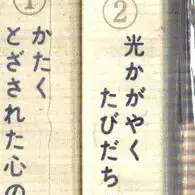 ①
かたく
とざされた心の
②
光かがやく
たびだち